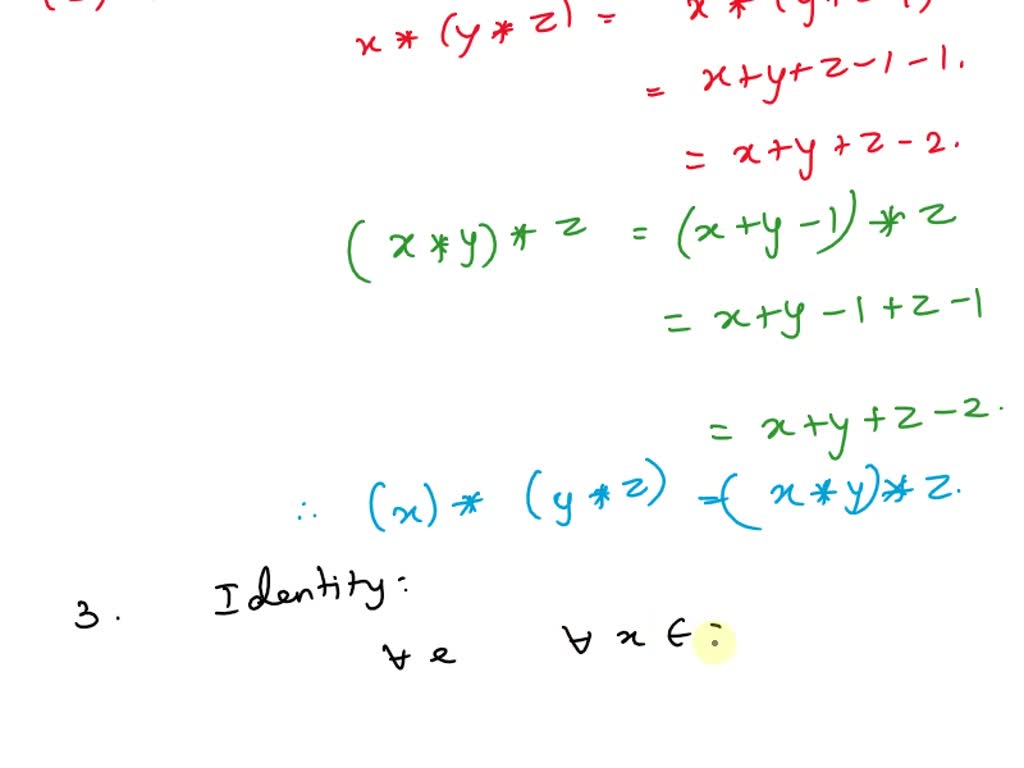 x * (y * z) =
= x+y+z-1-1.
= x+y+z-2.
(x*y)*z = (x+y-1)*z
= x+y-1+z-1
= x+y+z-2.
∴ (x)* (y*z) =(x*y)*z.
3. Identity:
∀ e ∀ x ∈